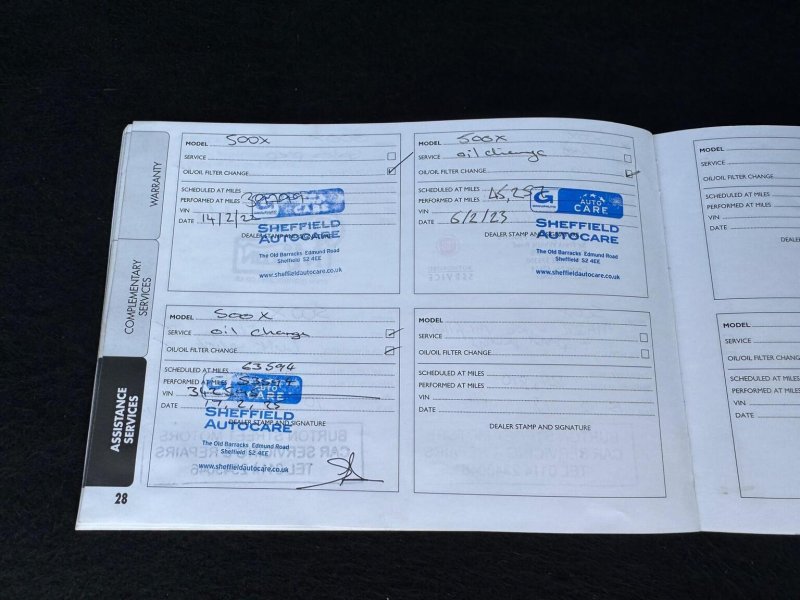 WARRANTY
COMPLEMENTARY
SERVICES
ASSISTANCE
SERVICES
28
MODEL 500X
SERVICE
OIL/OIL FILTER CHANGE
SCHEDULED AT MILES
PERFORMED AT MILES
VIN
DATE 14/2/22
DEALER STAMP AND SIGNATURE
SHEFFIELD
AUTOCARE
The Old Barracks Edmund Road
Sheffield S2 4EE
www.sheffieldautocare.co.uk
MODEL 500X
SERVICE oil change
OIL/OIL FILTER CHANGE
SCHEDULED AT MILES
PERFORMED AT MILES
VIN
DATE 6/2/23
AUTO
CARE
DEALER STAMP AND SIGNATURE
SHEFFIELD
AUTOCARE
The Old Barracks Edmund Road
Sheffield S2 4EE
www.sheffieldautocare.co.uk
MODEL 500X
SERVICE oil change
OIL/OIL FILTER CHANGE
SCHEDULED AT MILES 63594
PERFORMED AT MILES
VIN
DATE
AUTO
CARE
DEALER STAMP AND SIGNATURE
SHEFFIELD
AUTOCARE
The Old Barracks Edmund Road
Sheffield S2 4EE
www.sheffieldautocare.co.uk
MODEL
SERVICE
OIL/OIL FILTER CHANGE
SCHEDULED AT MILES
PERFORMED AT MILES
VIN
DATE
DEALER STAMP AND SIGNATURE
MODEL
SERVICE
OIL/OIL FILTER CHANGE
SCHEDULED AT MILES
PERFORMED AT MILES
VIN
DATE
MODEL
SERVICE
OIL/OIL FILTER CHAN
SCHEDULED AT MILES
PERFORMED AT MILES
VIN
DATE